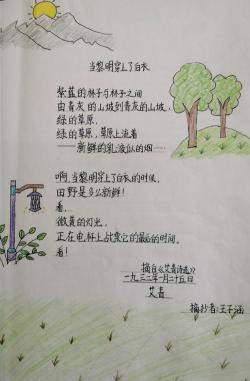 当黎明穿上了白衣
紫蓝的林子与林子之间
由青灰的山坡到青灰的山坡,
绿的草原,
绿的草原,草原上流着
——新鲜的乳液似的烟……
啊,当黎明穿上了白衣的时候,
田野是多么新鲜!
看,
微黄的灯光,
正在电杆上战栗它的最后的时间。
看!
摘自《艾青诗选》
一九三二年一月二十五日
艾青
摘抄者:王子涵